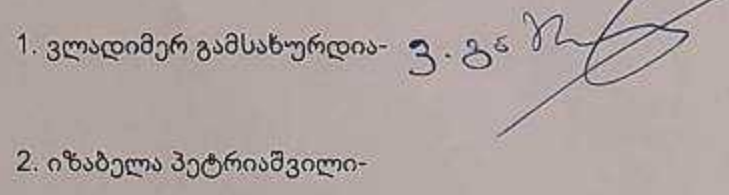 1. ვლადიმერ გამსახურდია- ვ. გ
2. იზაბელა პეტრიაშვილი-